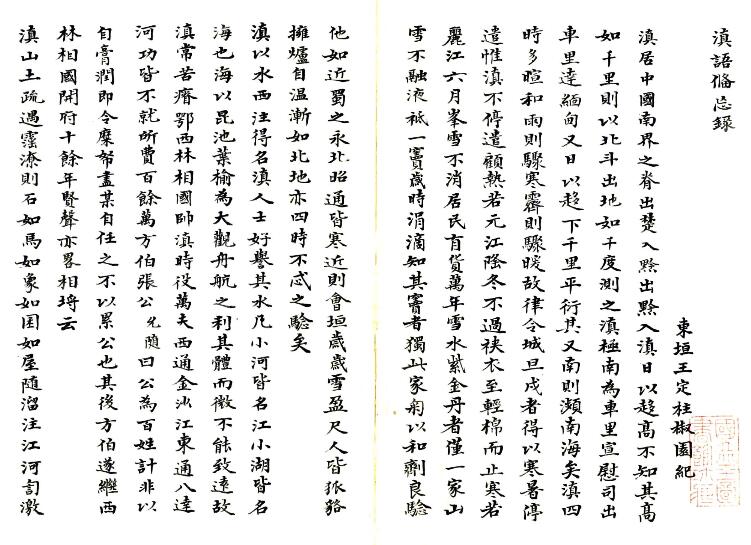 滇語偹忘錄
東垣王定柱椒園紀
滇居中國南界之脊出楚入黔出黔入滇日以趍高不知其高
如千里則以北斗出地如千度測之滇極南為車里宣慰司出
車里達緬甸又日以趍下千里平衍其又南則瀕南海矣滇四
時多暄和雨則驟寒霽則驟暖故律令城旦戍者得以寒暑停
遣惟滇不停遣顧熱若元江隆冬不過裌衣至輕棉而止寒若
麗江六月峯雪不消居民有貨萬年雪水紫金丹者僅一家山
雪不融液祗一竇歲時涓滴知其竇者獨此家匊以和劑良驗
他如近蜀之永北昭通皆寒近則會垣歲歲雪盈尺人皆狐貉
擁爐自温漸如北地亦四時不忒之驗矣
滇以水西注得名滇人士好譽其水乃小河皆名江小湖皆名
海也海以昆池葉榆為大觀舟航之利其體而微不能致遠故
滇常苦瘠鄂西林相國帥滇時役萬夫西通金沙江東通八達
河功皆不就所費百餘萬方伯張公允随曰公為百姓計非以
自膏潤即令糜帑盡某自任之不以累公也其後方伯遂繼西
林相國開府十餘年賢聲亦畧相埒云
滇山土疏遇霪潦則石如馬如象如囷如屋随溜注江河訇激